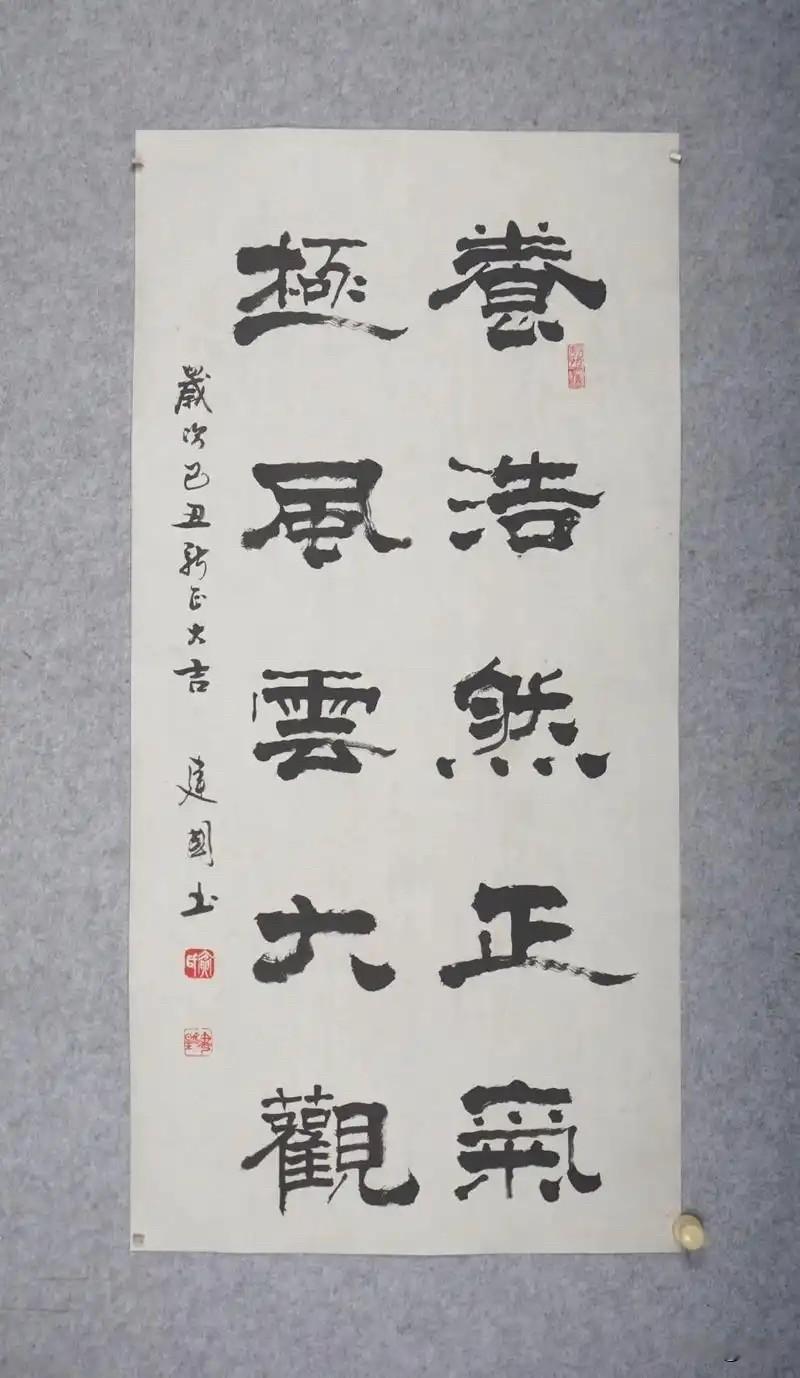 養浩然正氣
極風雲大觀
歲次己丑新正大吉 建國書